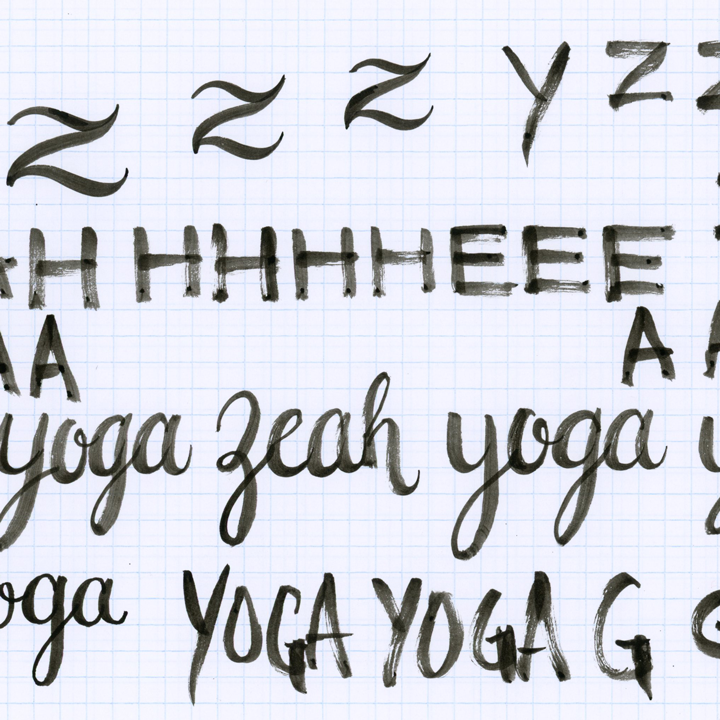 Z Z Z Y Z Z
H H H H H E E E
A A A A
yoga zeah yoga y
oga YOGA YOGA G